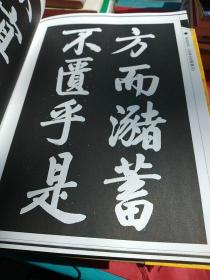 方而潴蓄
不匮乎是